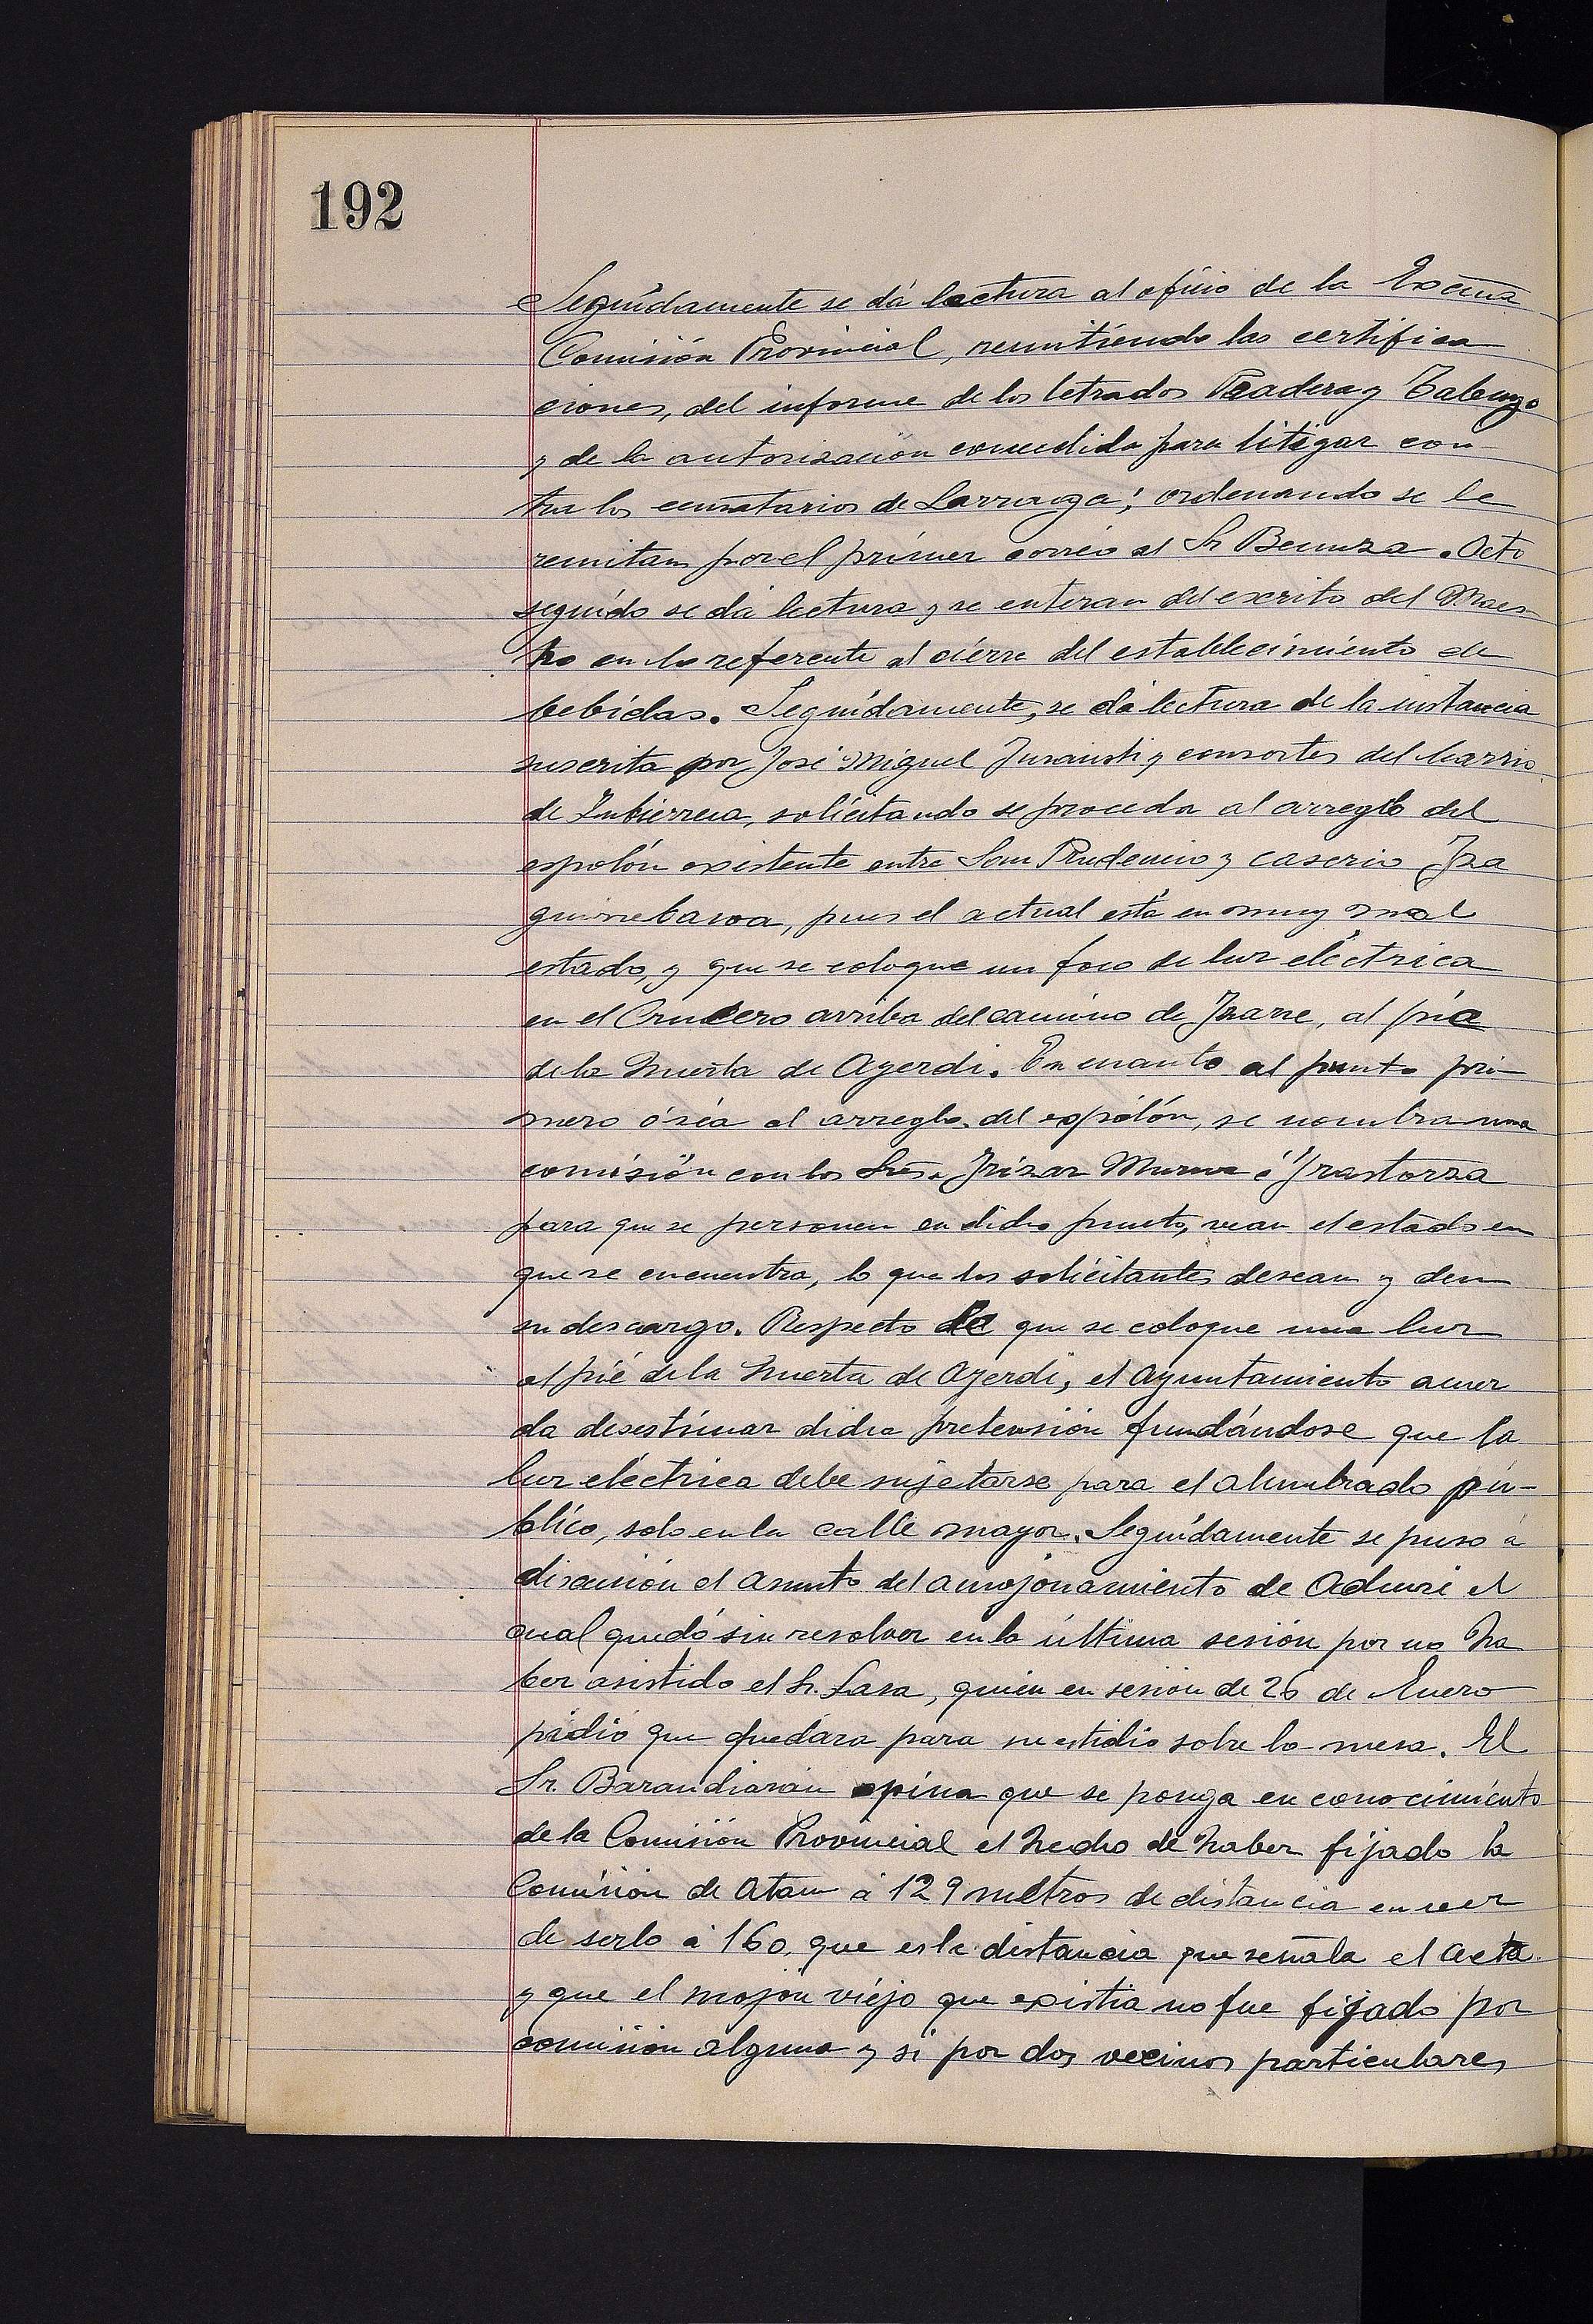 192
Seguídamente se dá lectura al oficio de la Excma
Comisión Provincial, remitiendo las certifica
ciones, del informe de los letrados y
y de la autorisación concedida para litigar con-
tra los censatarios de Larrunza; ordenando se le
remitan por el prímer correo al Sr Beunza. Acto
seguído se dá lectura y se enteran del escrito del Maes
tro en lo referente al cíerre del establecímíento de
bebídas. Seguídamente, se dá lectura de la instancia
suscrita por José Miguel y consortes del barrio
de solícitando se proceda al arreglo del
espolón existente entre San Prudencio y caserio Iza
guirrebarra, pues el actual está en muy mal
estado, y que se coloque un foco de luz eléctrica
en el Crucero arriba del camino de al píe
de la huerta de Ayerdi. En cuanto al punto pri-
mero ó séa al arreglo del espolón, se nombra una
comisión con los Sres. Irizar Murua é Irastorza
para que se personen en dicho punto, vean el estado en
que se encuentra, lo que los solícitantes desean y den
su descargo. Respecto de que se coloque una luz
al píé de la huerta de Ayerdi, el Ayuntamiento acuer
da desestímar dicha pretensión fundándose que la
luz eléctrica debe sujetarse para el alumbrado pú-
blíco, solo en la calle mayor. Seguídamente se puso á
discusión el asunto del amojonamiento de Aduuri el
cual quedó sin resolver en la última sesión por no ha
ber asistido el Sr. Lasa, quien en sesión de 26 de Enero
pidió que quedara para su estudio sobre la mesa. El
Sr. Barandiarán opína que se ponga en conocímíento
de la Comisión Provincial el hecho de haber fijado la
Comisión de Ataun á 129 metros de distancia en vez
de serlo á 160, que es la distancia que señala el acta
y que el mojón víejo que existia no fue fijado por
comisión alguna y si por dos vecinos particulares